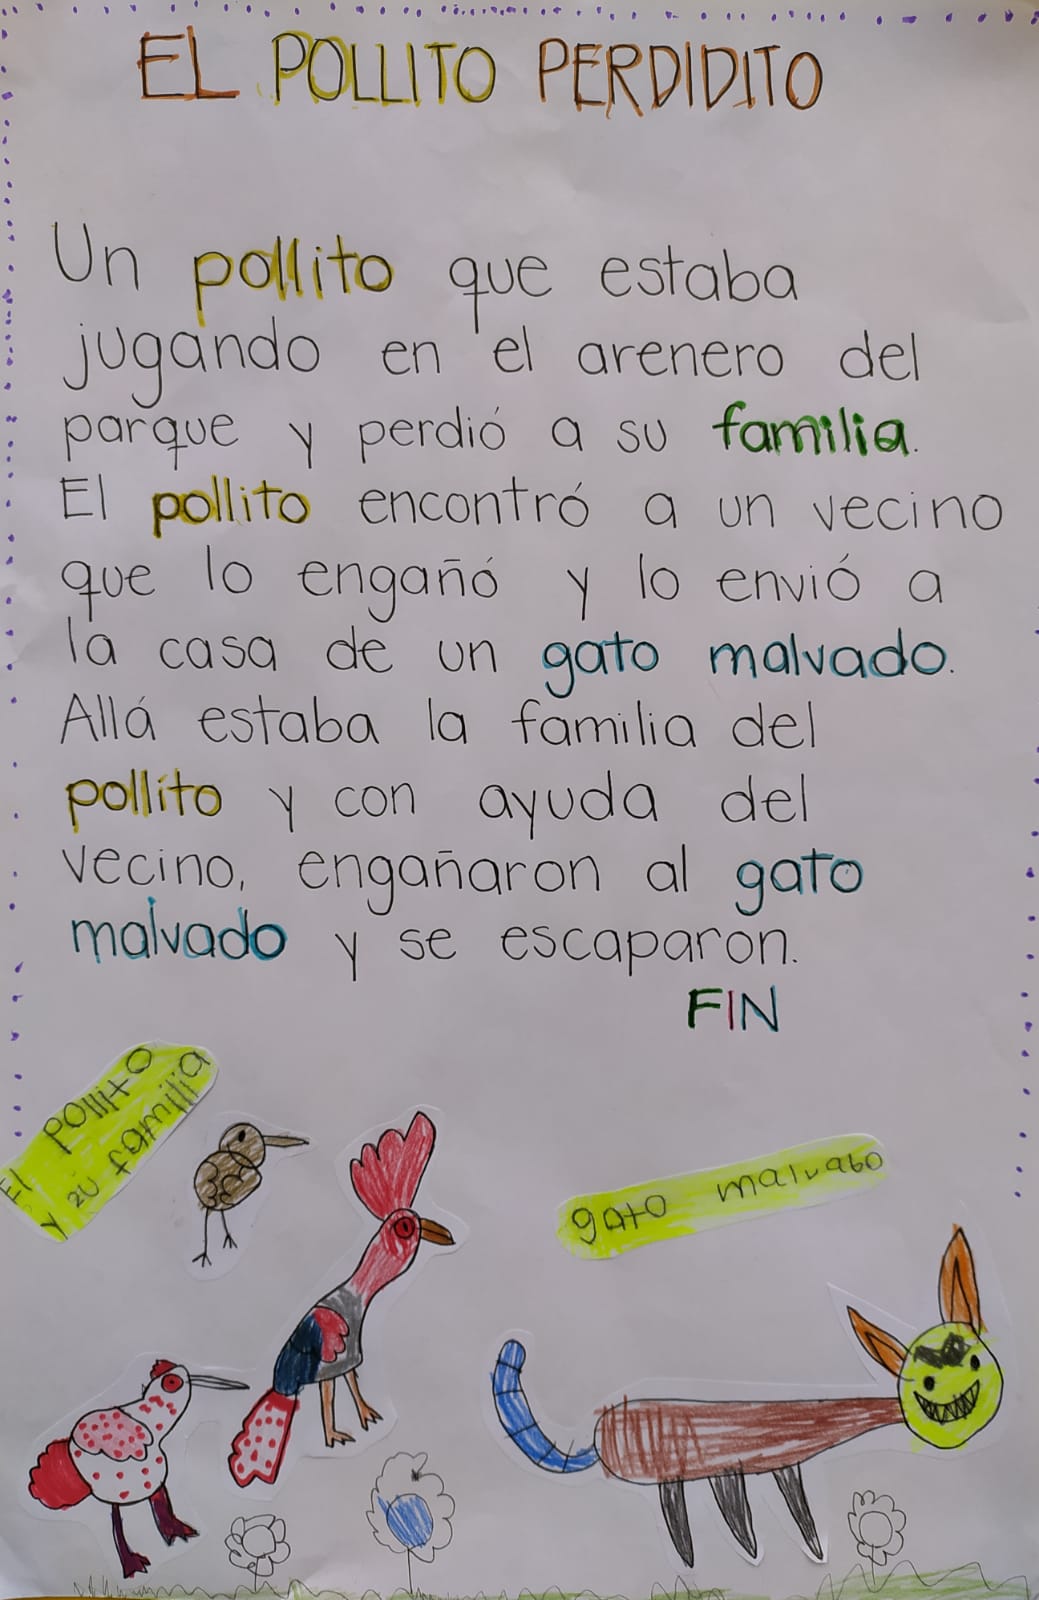 EL POLLITO PERDIDITO
Un pollito que estaba
jugando en el arenero del
parque y perdió a su familia.
El pollito encontró a un vecino
que lo engañó y lo envió a
la casa de un gato malvado.
Allá estaba la familia del
pollito y con ayuda del
vecino, engañaron al gato
malvado y se escaparon.
FIN
El pollito
y zu familia
gato malvabo